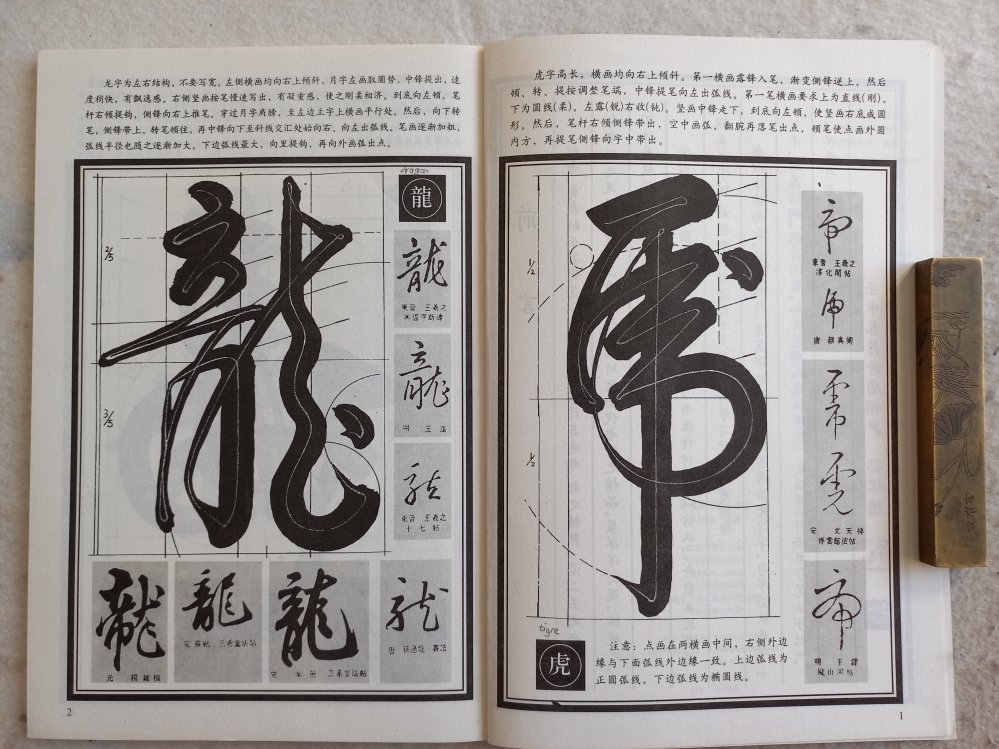 龙字为左右结构，不要写宽。左侧横画均向右上倾斜，月字左画取圆势，中锋提出，速
度稍快，有飘逸感。右侧竖画按笔慢速写出，有凝重感，使之刚柔相济。到底向左顿，笔
杆右倾提钩，侧锋向右上推笔，穿过月字肩膀，至左边立字上横画平行处。然后，向下转
笔，侧锋带上，转笔顿住，再中锋向下至斜线交汇处始向右、向左出弧线。笔画逐渐加粗，
弧线半径也随之逐渐加大。下边弧线最大，向里提钩，再向外画弧出点。
dragon
龍
龍
2/5
3/5
龍
東晉 王羲之
龍
明 王鐸
龍
東晉 王羲之
十七帖
龍
元 楊維楨
龍
宋 蘇軾 三希堂法帖
龍
宋 米芾 三希堂法帖
龍
唐 孫過庭 書譜
2
虎字高长，横画均向右上倾斜。第一横画露锋入笔，渐变侧锋送上，然后
顿、转、提按调整笔端，中锋提笔向左出弧线。第一笔横画要求上为直线(刚)。
下为圆线(柔)。左露(锐)右收(钝)。竖画中锋走下，到底向左顿，使竖画右底成圆
形。然后，笔杆右倾侧锋带出，空中画弧，翻腕再落笔出点，顿笔使点画外圆
内方，再提笔侧锋向字中带出。
虎
1/2
1/2
虎
東晉 王羲之
淳化閣帖
虎
唐 顏真卿
虎
虎
宋 文天祥
停雲館法帖
虎
明 王鐸
擬山園帖
tigre
虎
注意：点画在两横画中间，右侧外边
缘与下面弧线外边缘一致。上边弧线为
正圆弧线，下边弧线为椭圆线。
1